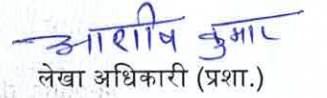 आशीष कुमार
लेखा अधिकारी (प्रशा.)